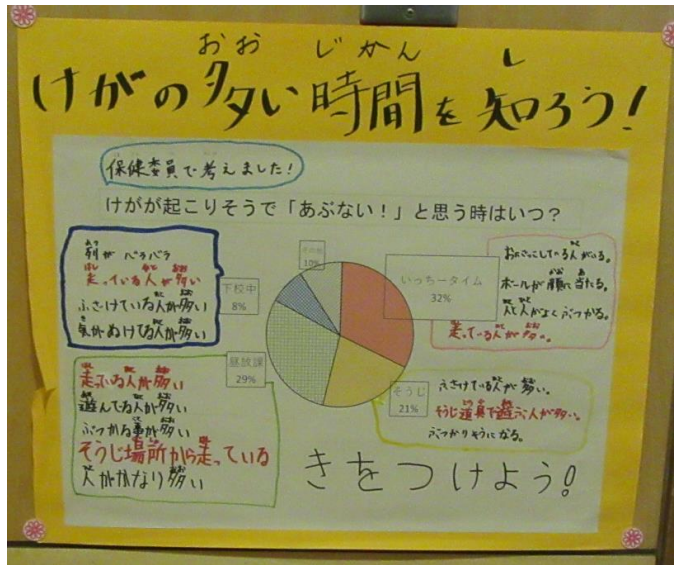 おお じかん し
けがの多い時間を知ろう!
保健委員で考えました!
けがが起こりそうで「あぶない!」と思う時はいつ?
れつ
列が バラバラ
走っている人が多い
ふざけている人が多い
気がぬけてる人が多い
下校中
8%
その他
10%
いっちータイム
32%
おにごっこしている人がいる。
ボールが顔に当たる。
人と人がよくぶつかる。
走っている人が多い。
昼放課
29%
走っている人が多い
遊んでる人が多い
ぶつかる事が多い
そうじ場所から走っている
人がかなり多い
そうじ
21%
ふざけている人が多い。
そうじ道具で遊ぶ人が多い。
ぶつかりそうになる。
きをつけよう!